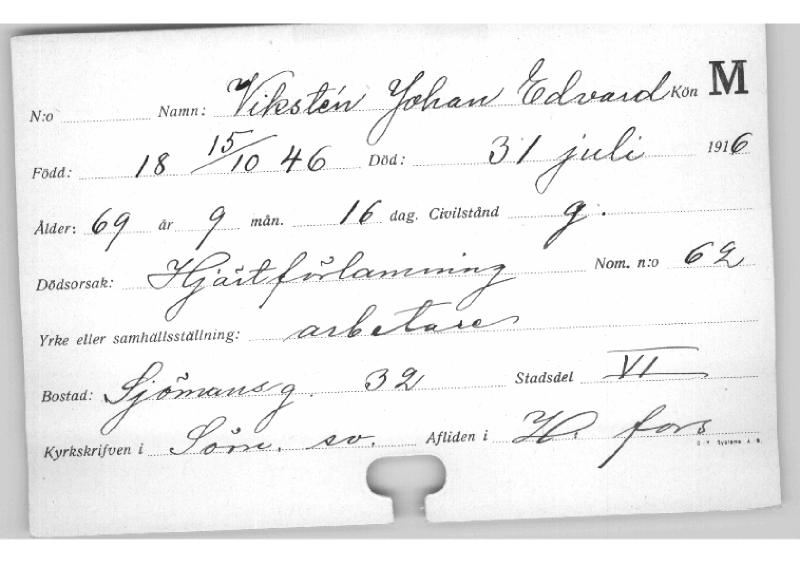 N:o Namn: Vikstén Johan Edvard Kön M
Född: 18 15/10 46 Död: 31 juli 1916
Ålder: 69 år 9 mån. 16 dag. Civilstånd g.
Dödsorsak: Hjärtförlamning Nom. n:o 62
Yrke eller samhällsställning: arbetare
Bostad: Sjömansg. 32 Stadsdel VI
Kyrkskrifven i Söm. sv. Afliden i H. fors